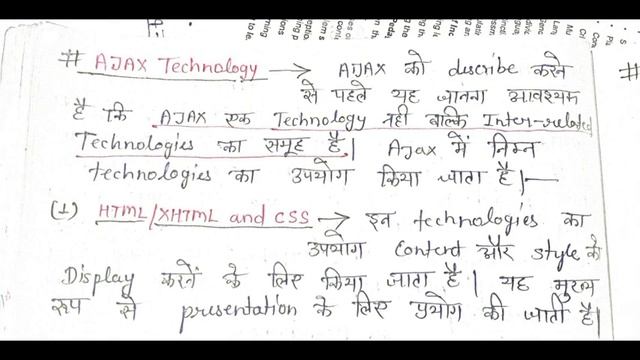 # AJAX Technology → AJAX को describe करने
से पहले यह जानना आवश्यक
है कि AJAX एक Technology नही बल्कि Inter-related
Technologies का समूह है| Ajax में निम्न
technologies का उपयोग किया जाता है|—
(1) HTML/XHTML and CSS → इन technologies का
उपयोग Content और style के
Display करनें के लिए किया जाता है| यह मुख्य
रूप से presentation के लिए प्रयोग की जाती है|
#